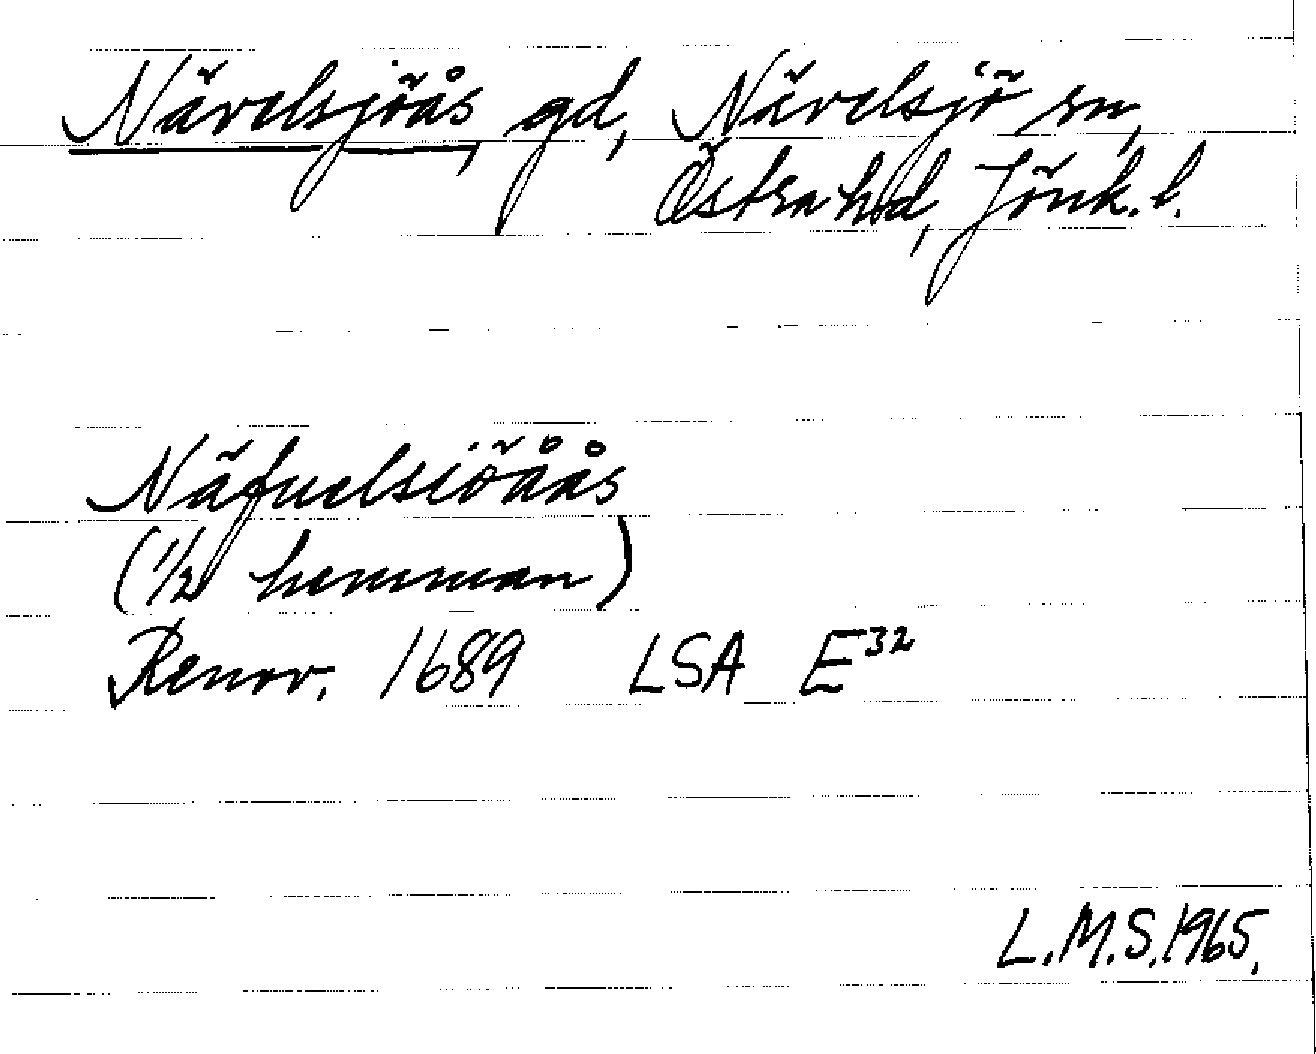 Nävelsjöås, gd, Nävelsjö sn,
Östra hd, Jönk. l.
Näfuelsiöåås
(1/2 hemman)
Renov. 1689 LSA E32
L.M.S. 1965.